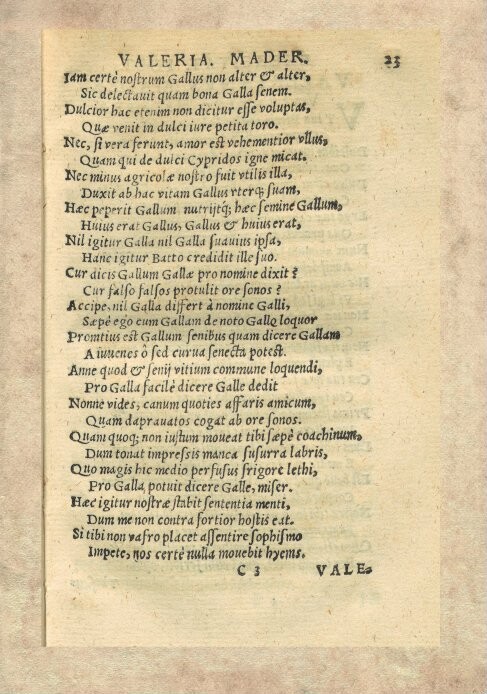 VALERIA. MADER. 23
Iam certè nostrum Gallus non alter & alter,
Sic delectauit quam bona Galla senem.
Dulcior hac etenim non dicitur esse voluptas,
Quæ venit in dulci iure petita toro.
Nec, si vera ferunt, amor est vehementior vllus,
Quam qui de dulci Cypridos igne micat.
Nec minus agricolæ nostro fuit vtilis illa,
Duxit ab hac vitam Gallus vterq; suam,
Hæc peperit Gallum nutrijtq; hæc semine Gallum,
Huius erat Gallus, Gallus & huius erat,
Nil igitur Galla nil Galla suauius ipsa,
Hanc igitur Batto credidit ille suo.
Cur dicis Gallum Gallæ pro nomine dixit?
Cur falso falsos protulit ore sonos?
Accipe, nil Galla differt à nomine Galli,
Sæpè ego cum Gallam de noto Gallo loquor
Promtius est Gallum senibus quam dicere Gallam
A iuuenes ô sed curua senecta potest.
Anne quod & senij vitium commune loquendi,
Pro Galla facilè dicere Galle dedit
Nonne vides, canum quoties affaris amicum,
Quam daprauatos cogat ab ore sonos.
Quam quoq; non iustum moueat tibi sæpè coachinum,
Dum tonat impressis manca susurra labris,
Quo magis hic medio perfusus frigore lethi,
Pro Galla, potuit dicere Galle, miser.
Hæc igitur nostræ stabit sententia menti,
Dum me non contra fortior hostis eat.
Si tibi non vafro placet assentire sophismo
Impete, nos certè nulla mouebit hyems.
C 3 VALE-